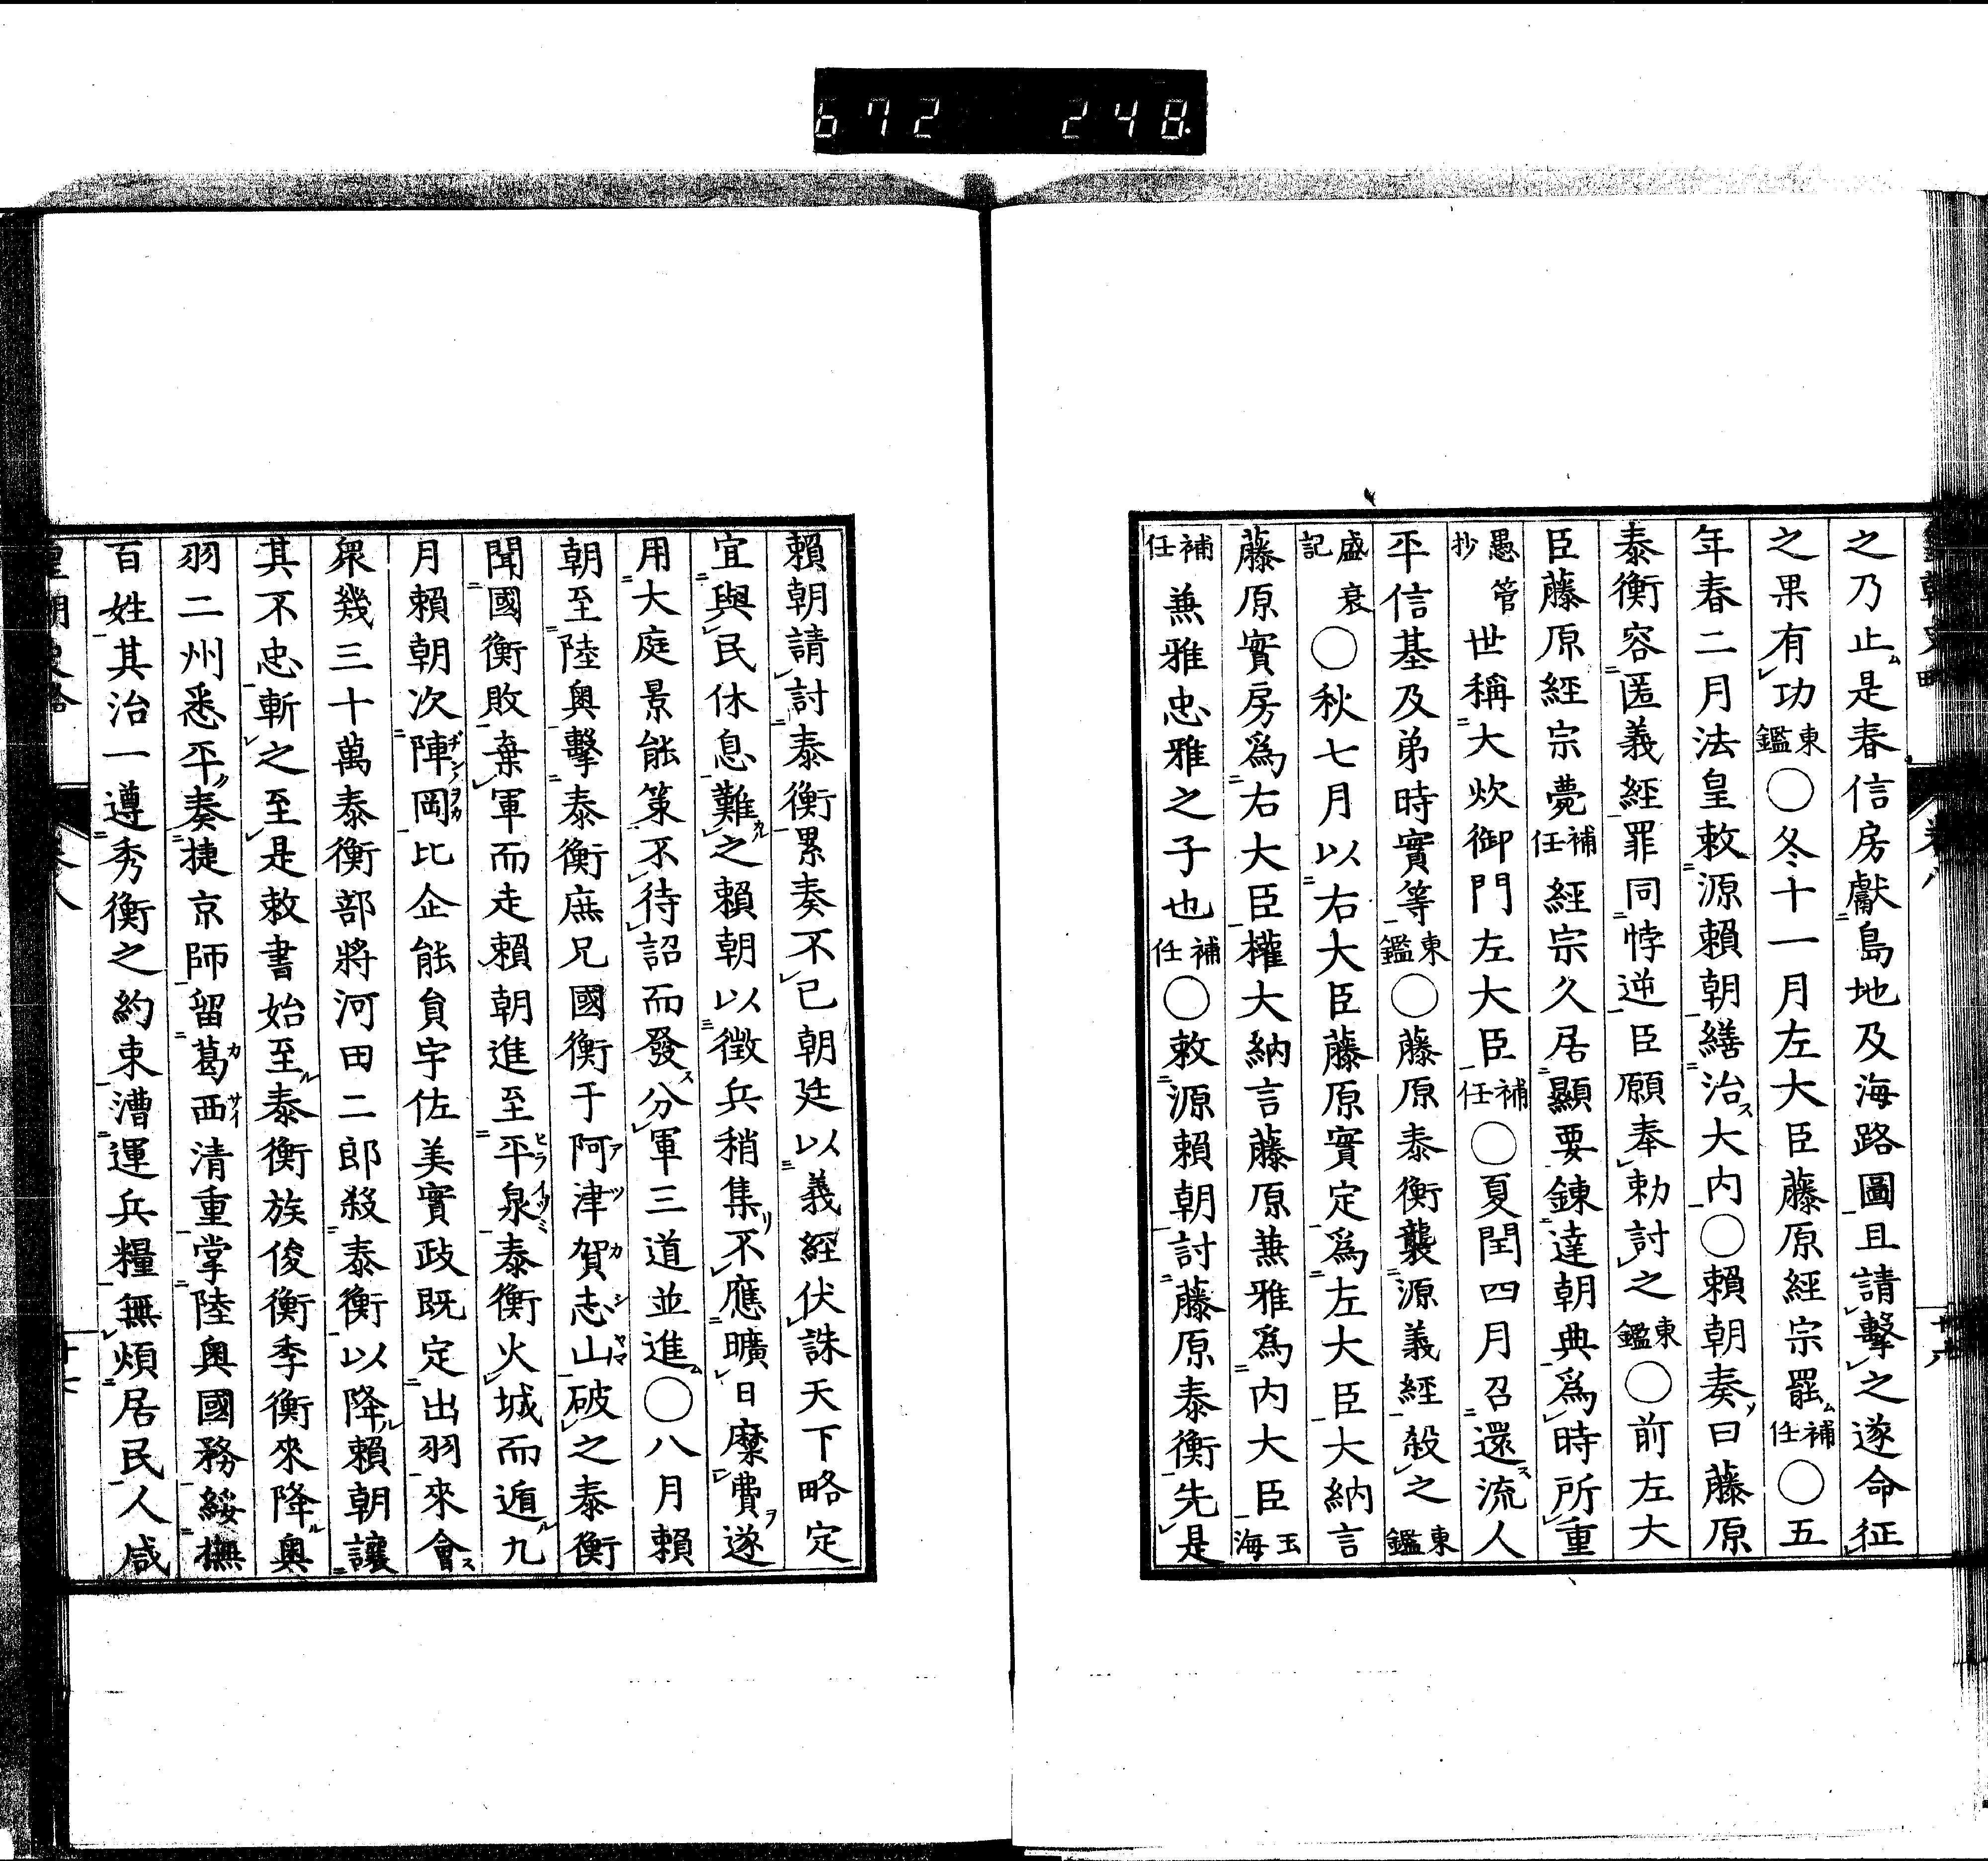 672 248
之乃止是春信房獻島地及海路圖且請擊之遂命征
之果有功東鑑○冬十一月左大臣藤原經宗罷補任○五
年春二月法皇敕源賴朝繕治大内○賴朝奏曰藤原
泰衡容匿義經罪同悖逆臣願奉勅討之東鑑○前左大
臣藤原經宗薨補任經宗久居顯要錬達朝典爲時所重
愚管抄世稱大炊御門左大臣補任○夏閏四月召還流人
平信基及弟時實等東鑑○藤原泰衡襲源義經殺之東鑑
盛衰記○秋七月以右大臣藤原實定爲左大臣大納言
藤原實房爲右大臣權大納言藤原兼雅爲内大臣玉海
補任兼雅忠雅之子也補任○敕源賴朝討藤原泰衡先是
賴朝請討泰衡累奏不已朝廷以義經伏誅天下略定
宜與民休息難之賴朝以徵兵稍集不應曠日糜費遂
用大庭景能策不待詔而發分軍三道並進○八月賴
朝至陸奥擊泰衡庶兄國衡于阿津賀志山破之泰衡
聞國衡敗棄軍而走賴朝進至平泉泰衡火城而遁九
月賴朝次陣岡比企能員宇佐美實政既定出羽來會
衆幾三十萬泰衡部將河田二郎殺泰衡以降賴朝讓
其不忠斬之至是敕書始至泰衡族俊衡季衡來降奥
羽二州悉平奏捷京師留葛西清重掌陸奥國務綏撫
百姓其治一遵秀衡之約束漕運兵糧無煩居民人咸